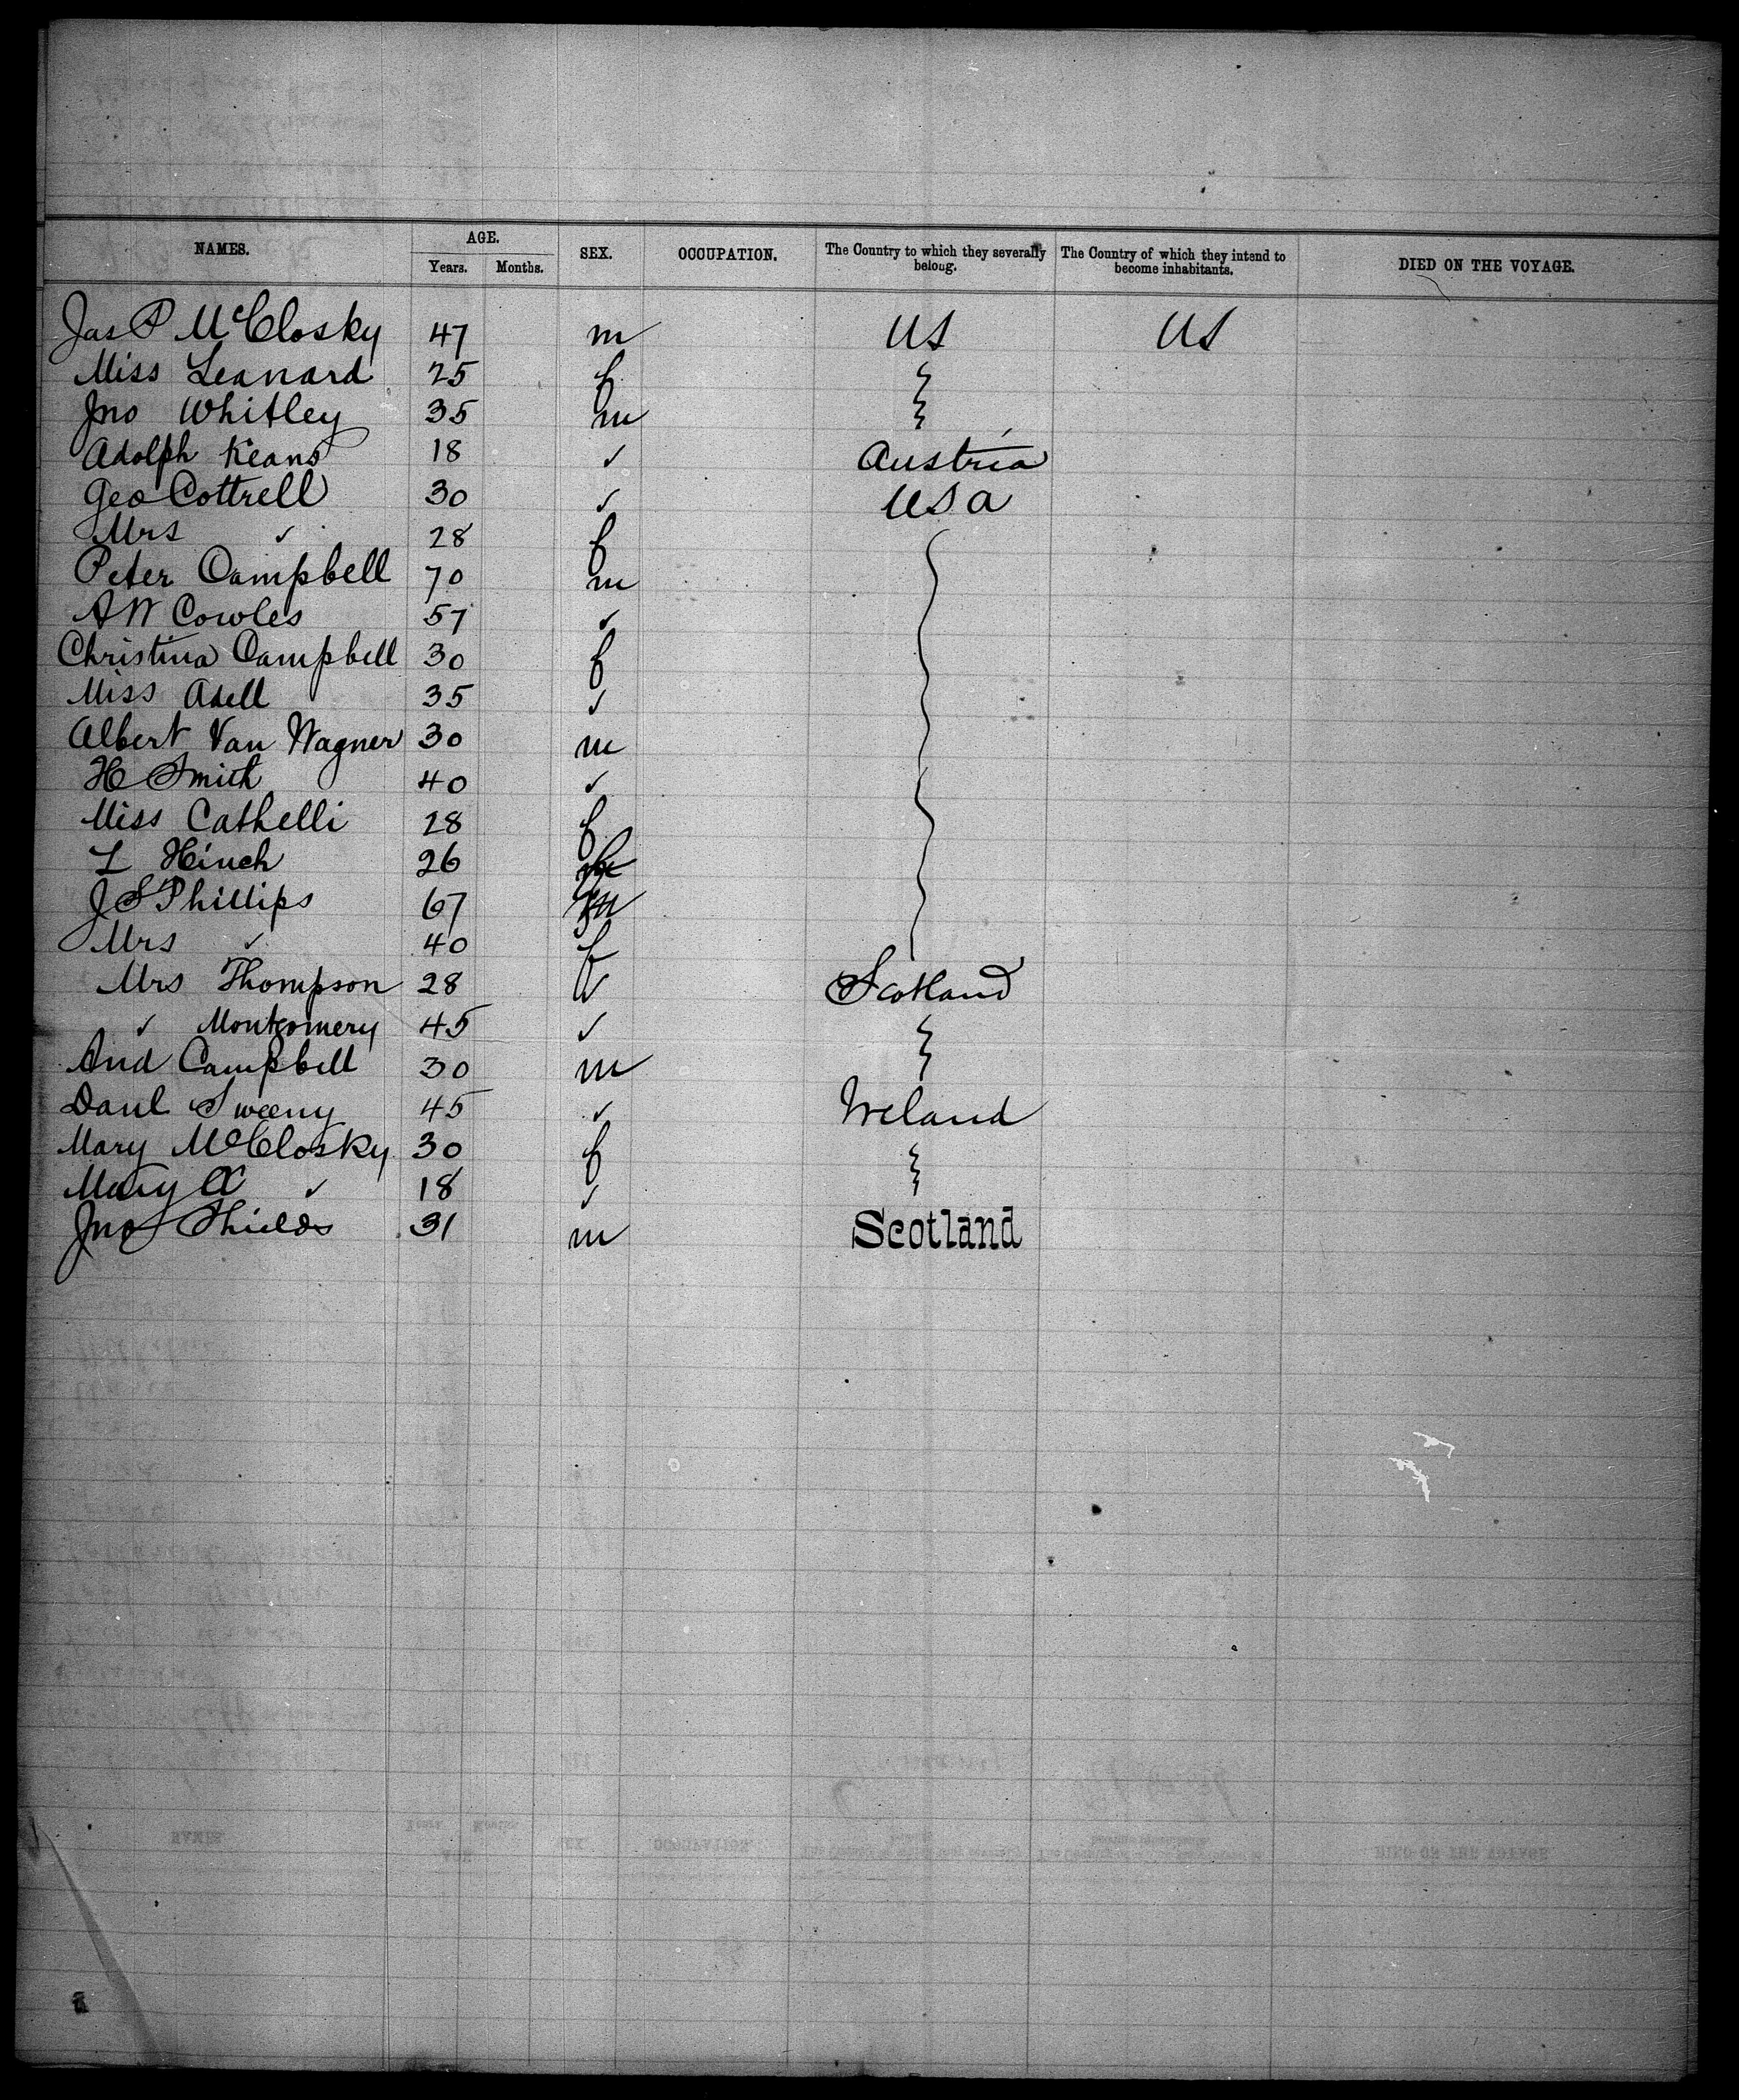 NAMES. AGE. Years. Months. SEX. OCCUPATION. The Country to which they severally belong. The Country of which they intend to become inhabitants. DIED ON THE VOYAGE.
Jas P McClosky 47 m US US
Miss Leanard 25 f
Jno Whitley 35 m
Adolph Keans 18 ✓ Austria
Geo Cottrell 30 ✓ USA
Mrs ✓ 28 f
Peter Campbell 70 m
A W Cowles 57 ✓
Christina Campbell 30 f
Miss Adell 35 ✓
Albert Van Wagner 30 m
H Smith 40 ✓
Miss Cathelli 28 f
L Hinch 26
J S Phillips 67 m
Mrs ✓ 40 f
Mrs Thompson 28 ✓ Scotland
✓ Montgomery 45 ✓
And Campbell 30 m
Danl Sweeny 45 ✓ Ireland
Mary McClosky 30 f
Mary A ✓ 18 ✓
Jno Shields 31 m Scotland